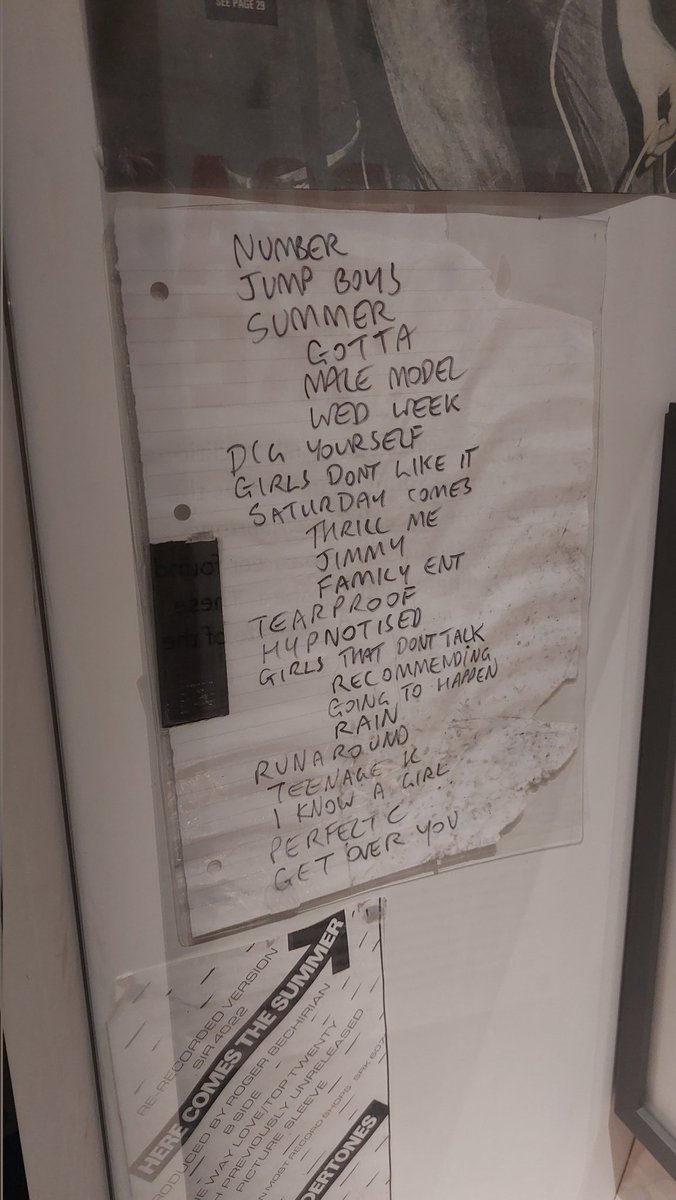 SEE PAGE 29
NUMBER
JUMP BOYS
SUMMER
GOTTA
MALE MODEL
WED WEEK
DIG YOURSELF
GIRLS DONT LIKE IT
SATURDAY COMES
THRILL ME
JIMMY
FAMILY ENT
TEARPROOF
HYPNOTISED
GIRLS THAT DONT TALK
RECOMMENDING
GOING TO HAPPEN
RAIN
RUNAROUND
TEENAGE K
I KNOW A GIRL
PERFECT C
GET OVER YOU
7
RE-RECORDED VERSION
SIR 4022
HERE COMES THE SUMMER
ODUCED BY ROGER BECHIRIAN
B SIDE
E WAY LOVE/TOP TWENTY
H PREVIOUSLY UNRELEASED
PICTURE SLEEVE
N MOST RECORD SHOPS
DERTONES